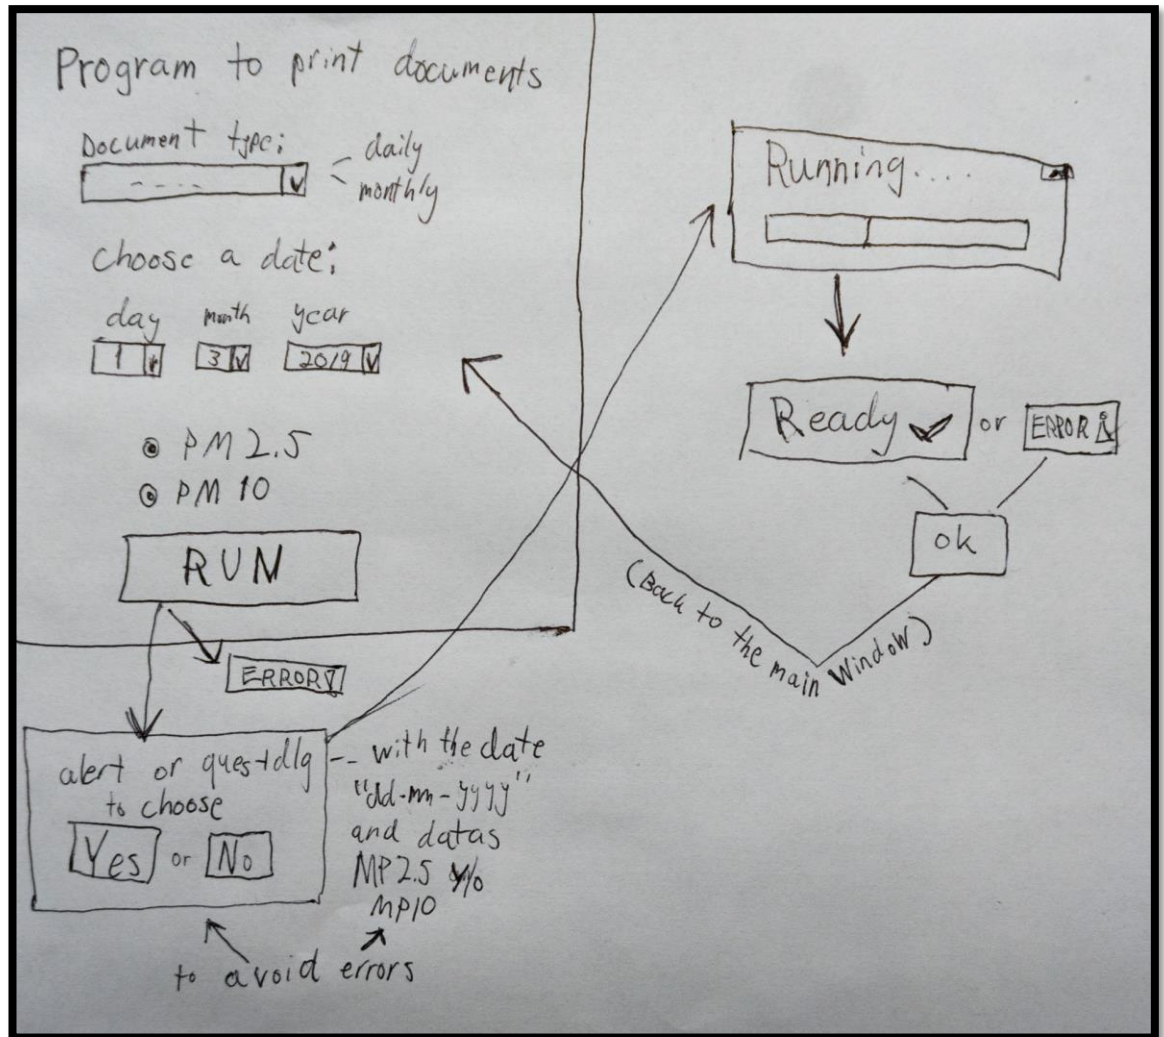 Program to print documents
Document type:
----
daily
monthly
choose a date:
day month year
1 3 2019
PM 2.5
PM 10
RUN
ERROR
alert or questdlg
to choose
Yes or No
-- with the date
"dd-mm-yyyy"
and datas
MP2.5 y/o
MP10
to avoid errors
Running....
Ready ✓ or ERROR
ok
(Back to the main Window)